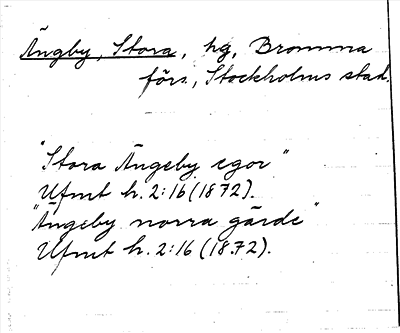 Ängby, Stora, hg, Bromma
förs., Stockholms stad.
"Stora Ängeby egor"
Ufmt h. 2:16 (1872).
"Ängeby norra gärde"
Ufmt h. 2:16 (1872).